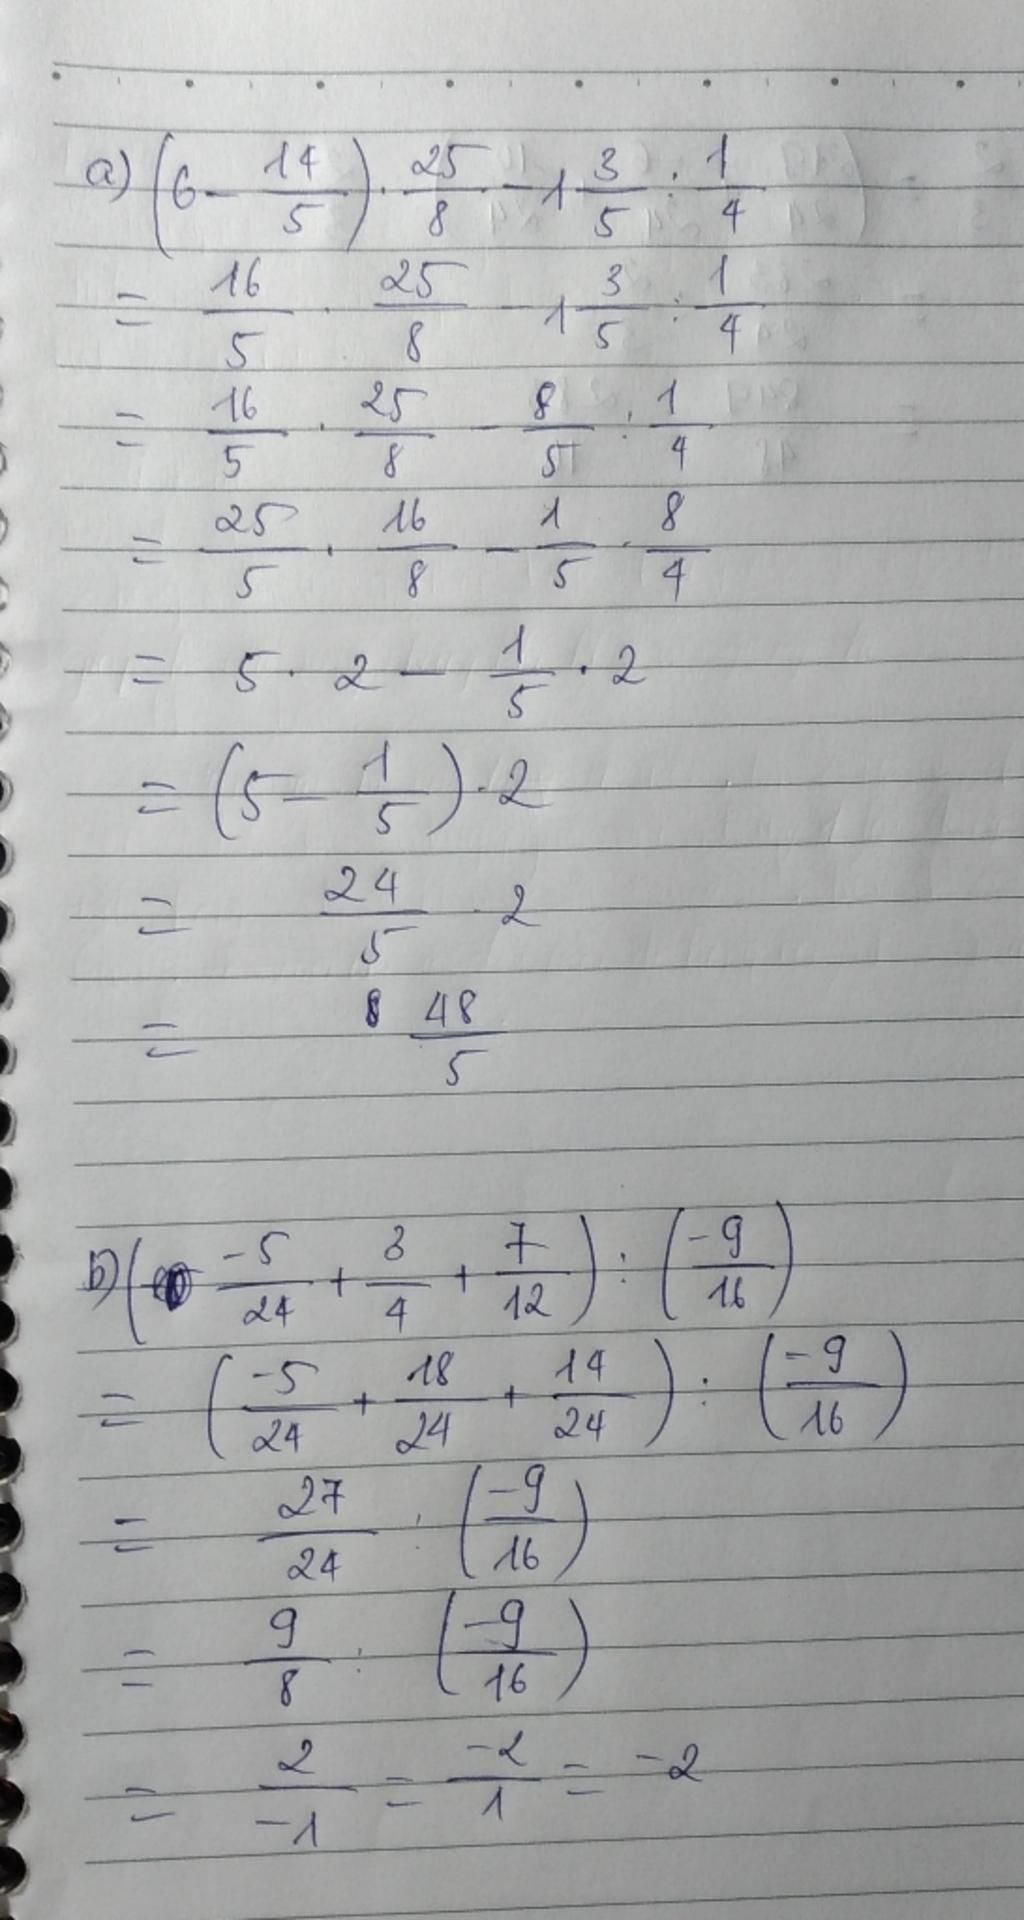 a) (6 - 14/5) · 25/8 - 1 3/5 : 1/4
= 16/5 · 25/8 - 1 3/5 : 1/4
= 16/5 · 25/8 - 8/5 : 1/4
= 25/5 · 16/8 - 1/5 · 8/4
= 5 · 2 - 1/5 · 2
= (5 - 1/5) · 2
= 24/5 · 2
= 8 48/5
b) (-5/24 + 3/4 + 7/12) : (-9/16)
= (-5/24 + 18/24 + 14/24) : (-9/16)
= 27/24 : (-9/16)
= 9/8 : (-9/16)
= 2/-1 = -2/1 = -2